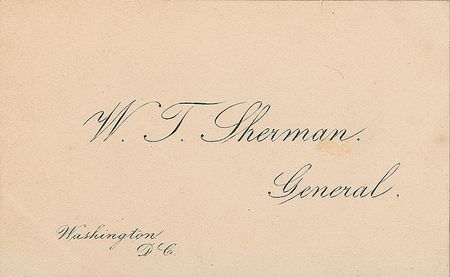 W. T. Sherman.
General.
Washington
D.C.